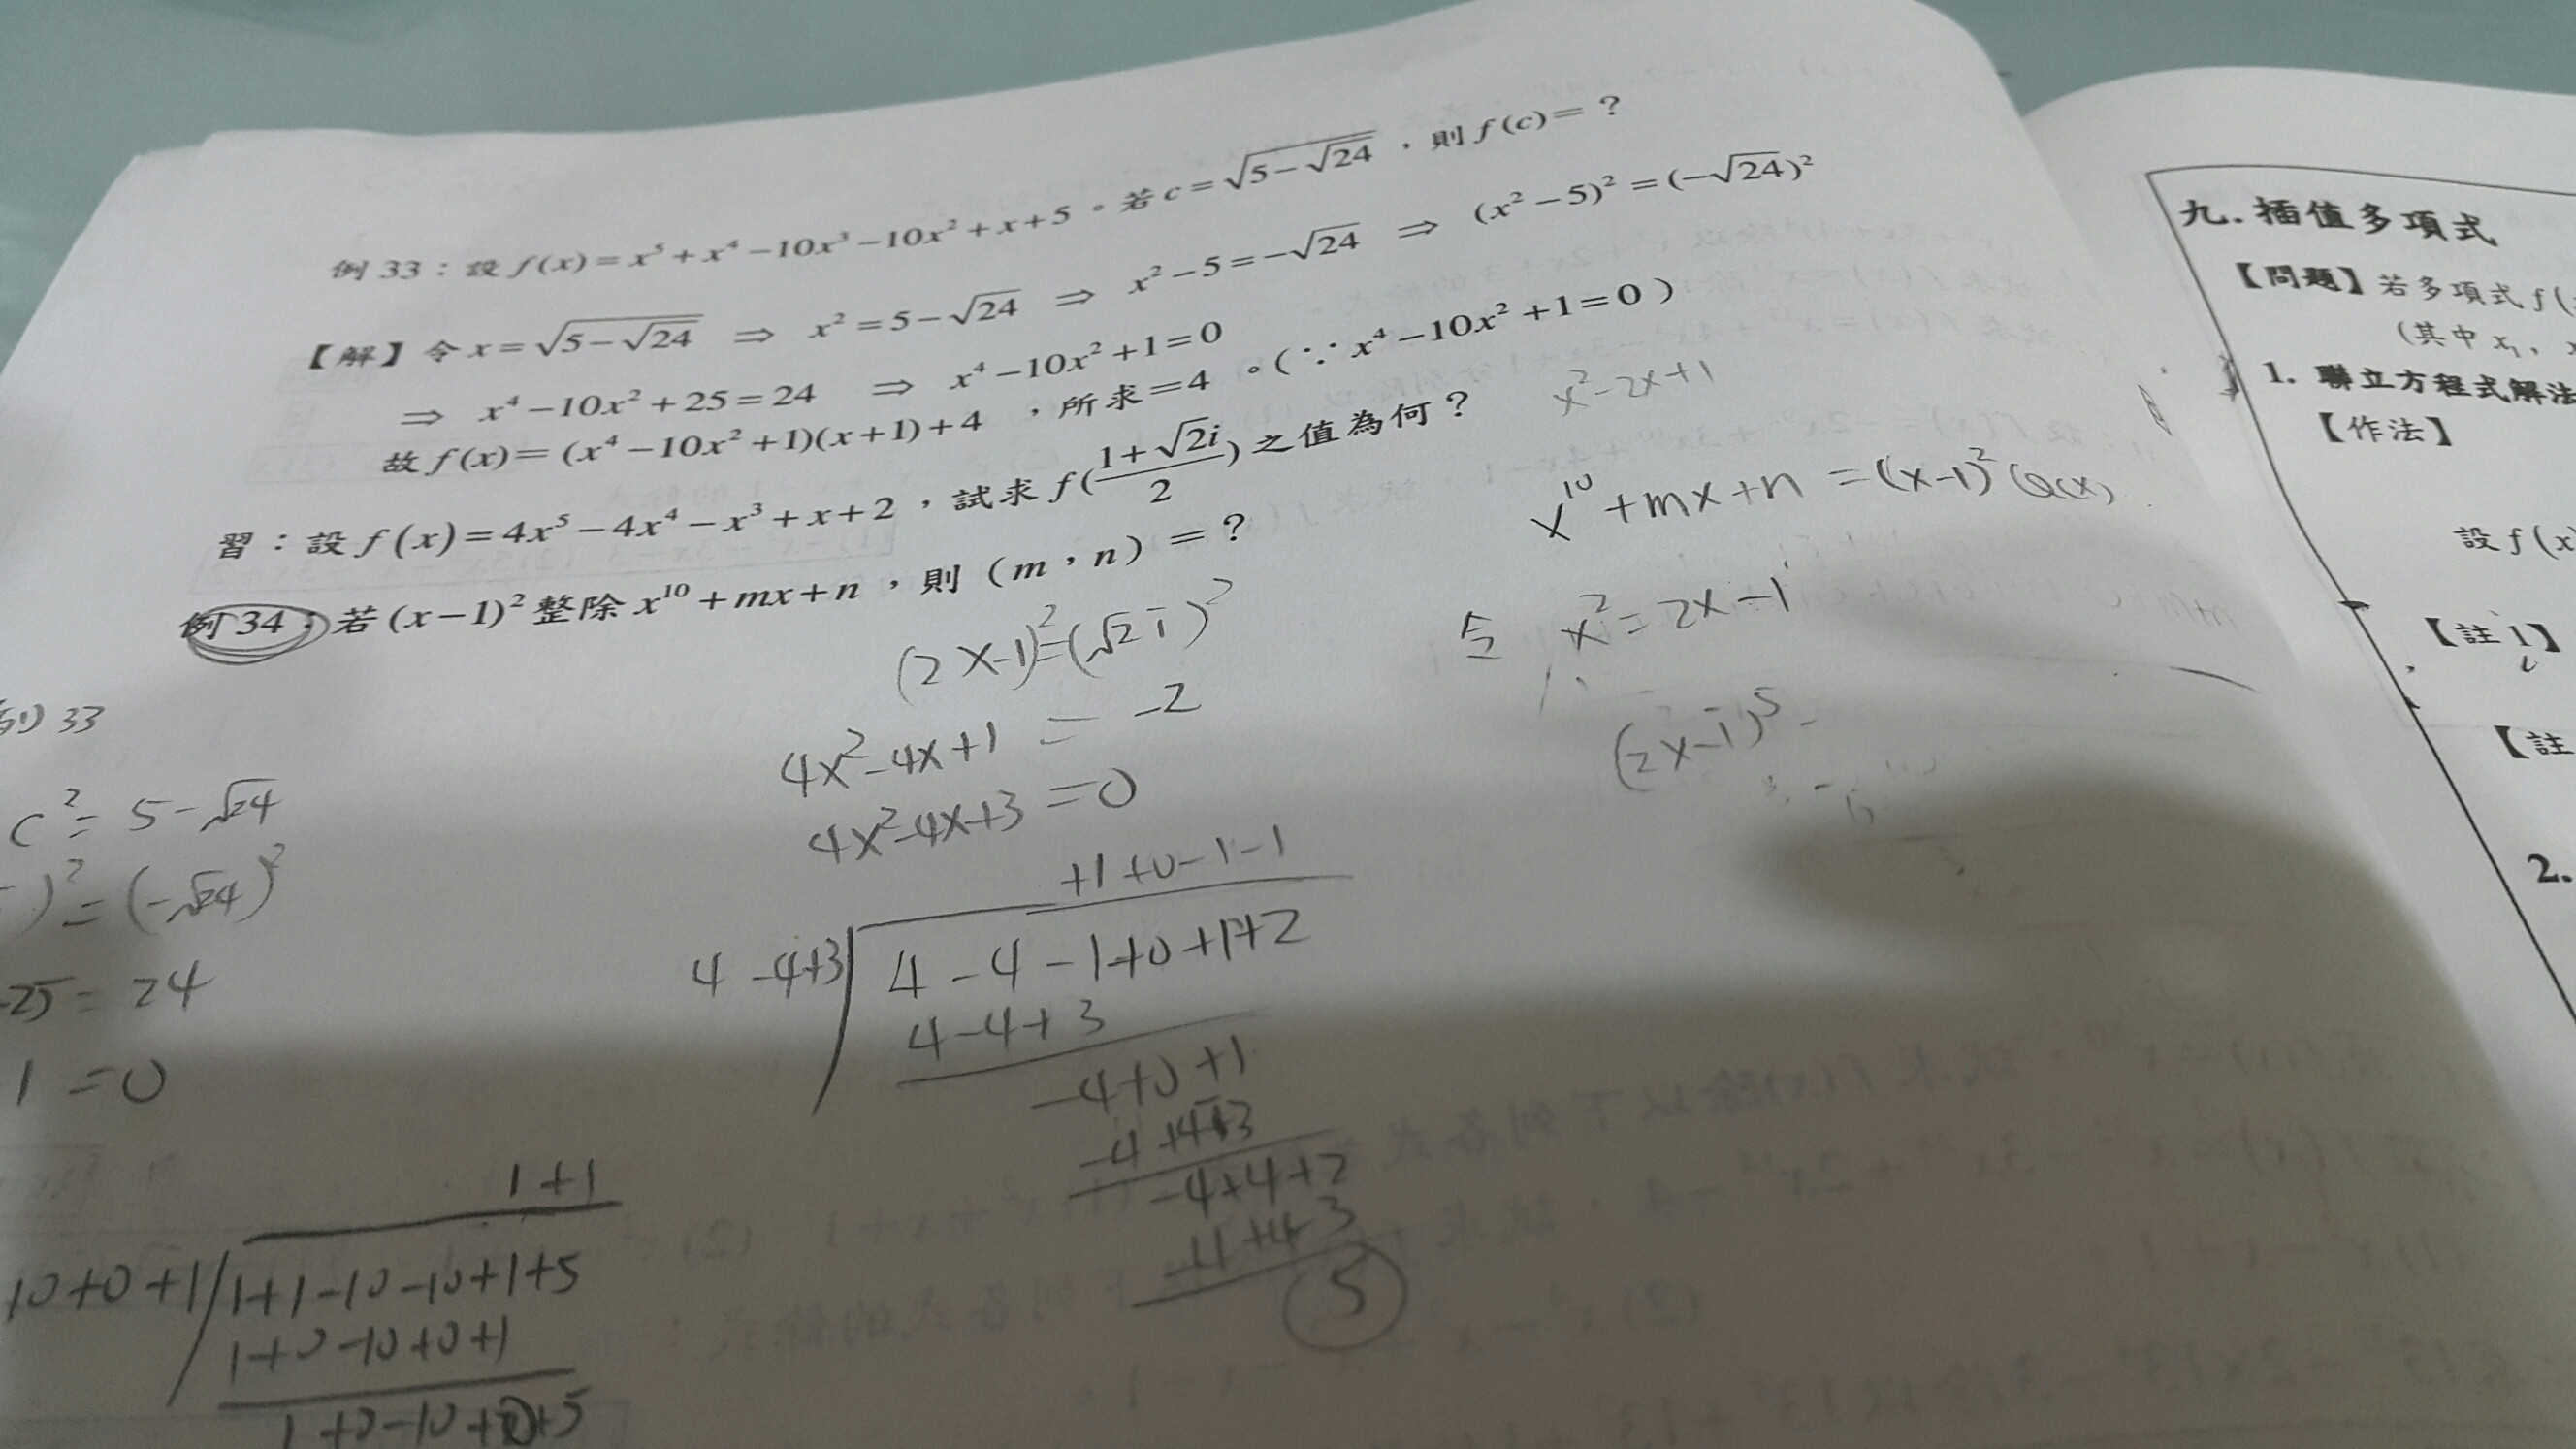 例 33：設 f(x)=x⁵+x⁴−10x³−10x²+x+5。若 c=√(5−√24)，則 f(c)=？
【解】令 x=√(5−√24) ⇒ x²=5−√24 ⇒ x²−5=−√24 ⇒ (x²−5)²=(−√24)²
⇒ x⁴−10x²+25=24 ⇒ x⁴−10x²+1=0
故 f(x)=(x⁴−10x²+1)(x+1)+4，所求=4。(∵x⁴−10x²+1=0)
習：設 f(x)=4x⁵−4x⁴−x³+x+2，試求 f((1+√2i)/2) 之值為何？
例 34：若 (x−1)² 整除 x¹⁰+mx+n，則（m，n）=？
x²-2x+1
x¹⁰+mx+n=(x-1)²Q(x)
令 x²=2x-1
(2x-1)⁵-
(2x-1)²=(√2i)²
4x²-4x+1=-2
4x²-4x+3=0
+1+0-1-1
4-4+3 4-4-1+0+1+2
4-4+3
-4+0+1
-4+4-3
-4+4+2
-4+4-3
5
33
c²=5-√24
)²=(-√24)²
25=24
1=0
1+1
10+0+1 1+1-10-10+1+5
1+0-10+0+1
1+0-10+0+5
九. 插值多項式
【問題】若多項式 f(
(其中 x₁，
1. 聯立方程式解法
【作法】
設 f(x)
【註 1】
【註
2.